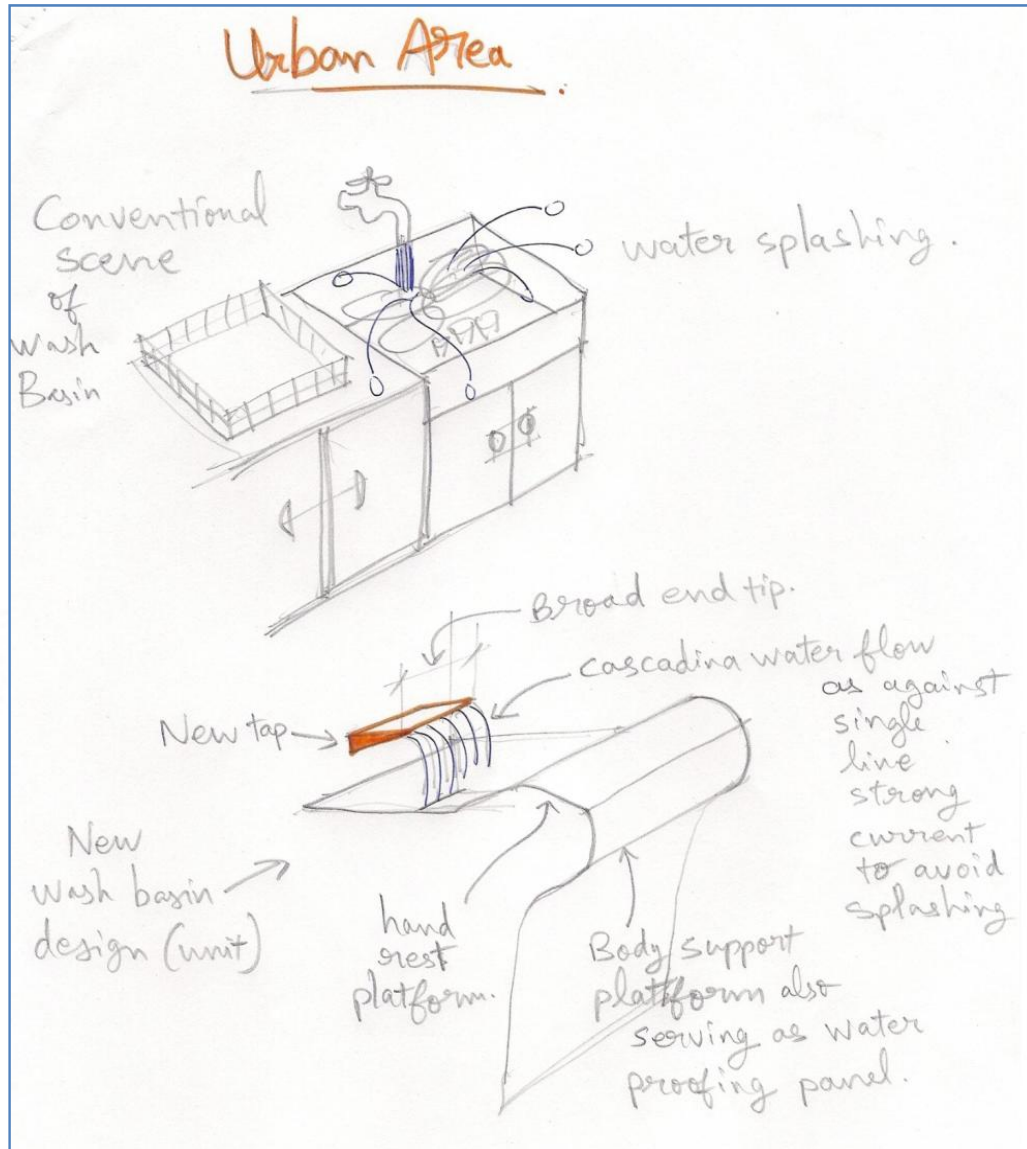 Urban Area.
Conventional
scene
of
wash
Basin
water splashing.
Broad end tip.
cascadina water flow
as against
single
line
strong
current
to avoid
splashing
New tap
New
wash basin
design (unit)
hand
rest
platform.
Body support
platform also
serving as water
proofing panel.